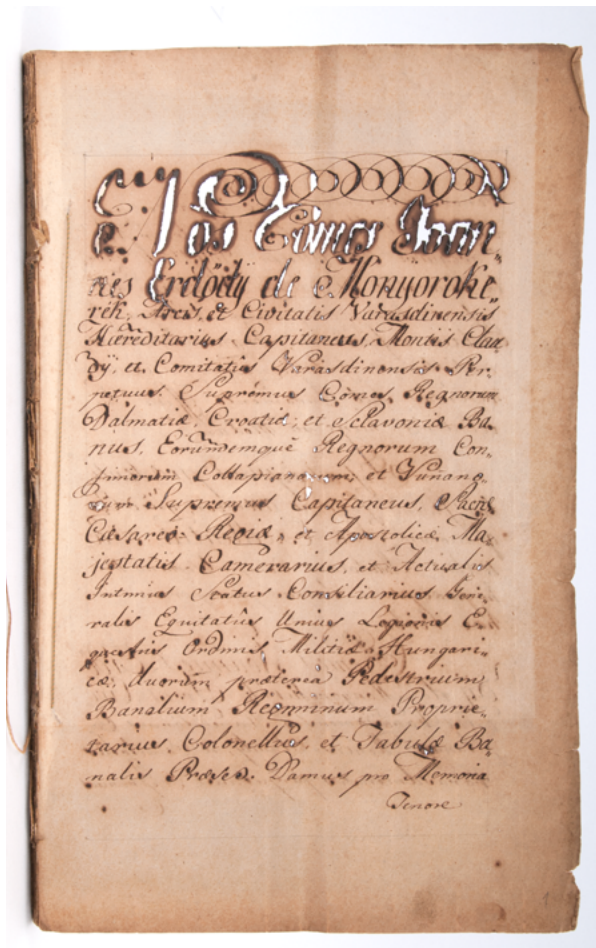 Nos Comes Joan-
nes Erdödy de Monyoroke-
rék, Arcis, et Civitatis Varasdinensis
Hæreditarius Capitaneus, Montis Clau-
dÿ, et Comitatus Varasdinensis Per-
petuus Supremus Comes, Regnorum
Dalmatiæ, Croatiæ, et Sclavoniæ Ba-
nus, Eorundemque Regnorum Con-
finiorum Collapianorum, et Vunano-
rum Supremus Capitaneus, Sacræ
Cæsareo Regiæ, et Apostolicæ Ma-
jestatis Camerarius, et Actualis
Intimus Status Consiliarius, Gene-
ralis Equitatus Unius Legionis E-
questris Ordinis, Militiæ Hungari-
cæ duorum præterea Pedestrium
Banalium Regiminum Proprie-
tarius Colonellus, et Tabulæ Ba-
nalis Præses. Damus pro Memoria
Tenore